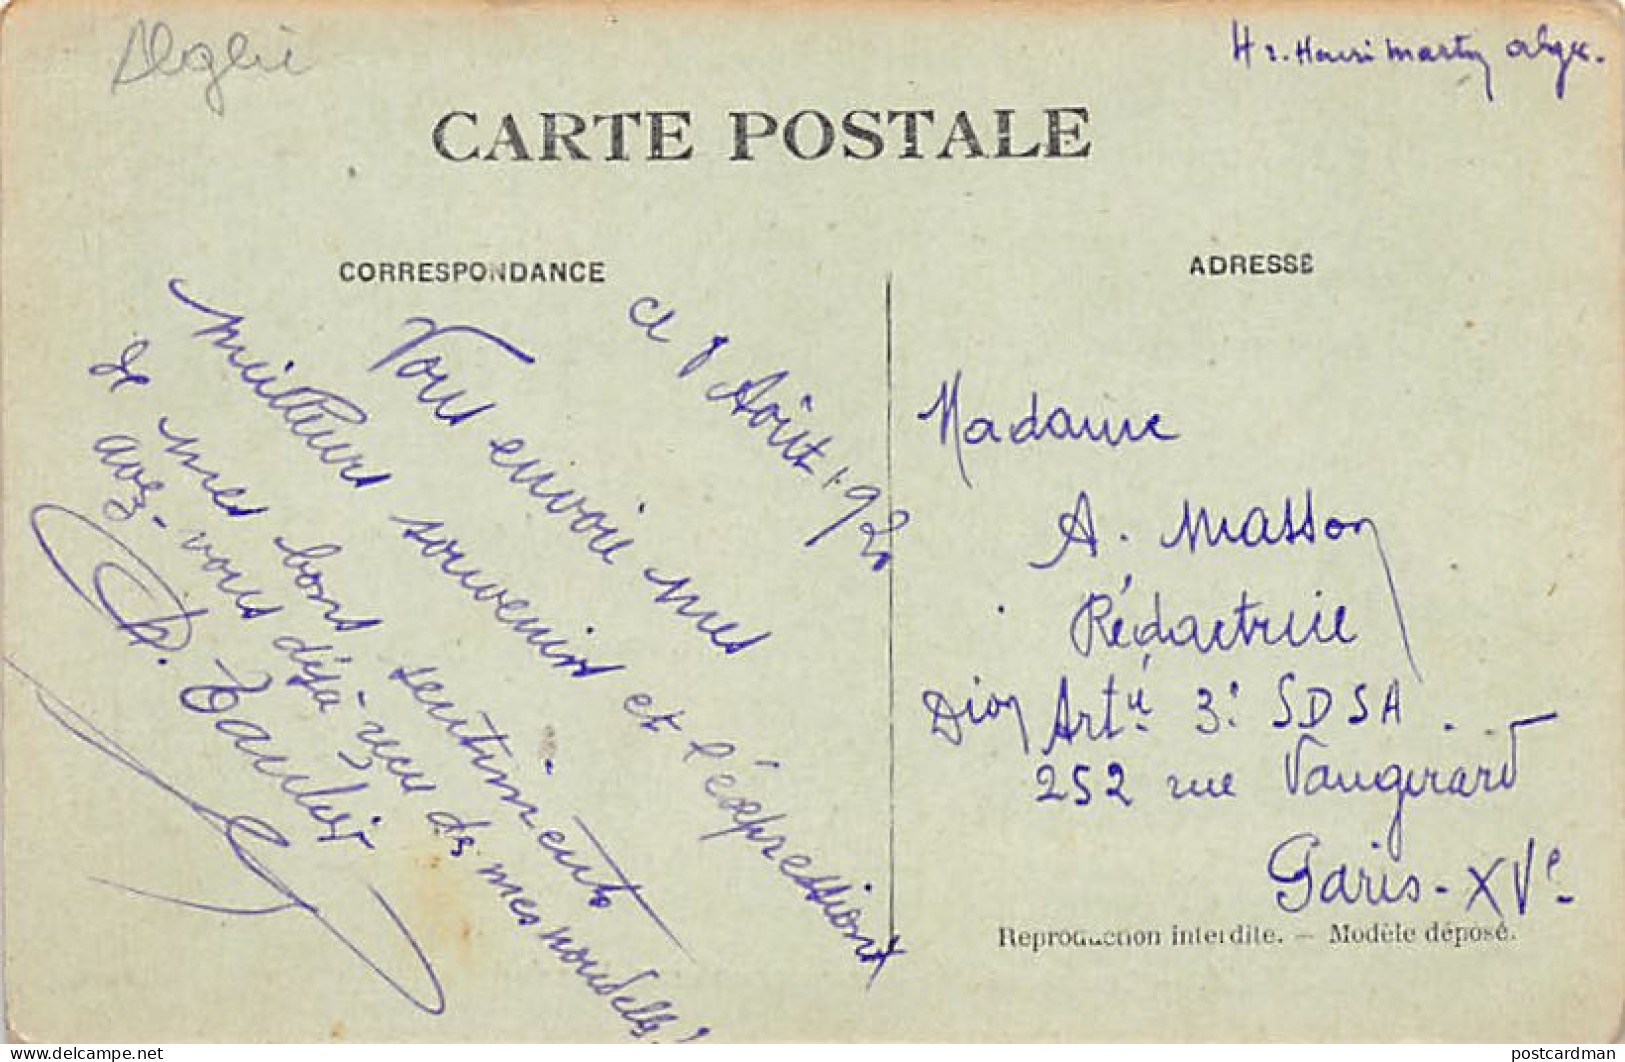 Algérie
Hr. Henri Martin
CARTE POSTALE
CORRESPONDANCE
ADRESSE
ce 8 Août 192
Vous envoie mes
meilleurs souvenirs et l'expression
de mes bons sentiments
avez-vous déjà reçu de mes nouvelles!
Madame
A. Masson
Rédactrice
Dion Artie 3e SDSA.
252 rue Vaugirard
Paris-XVe
Reproduction interdite. — Modèle déposé.
delcampe.net
postcardman